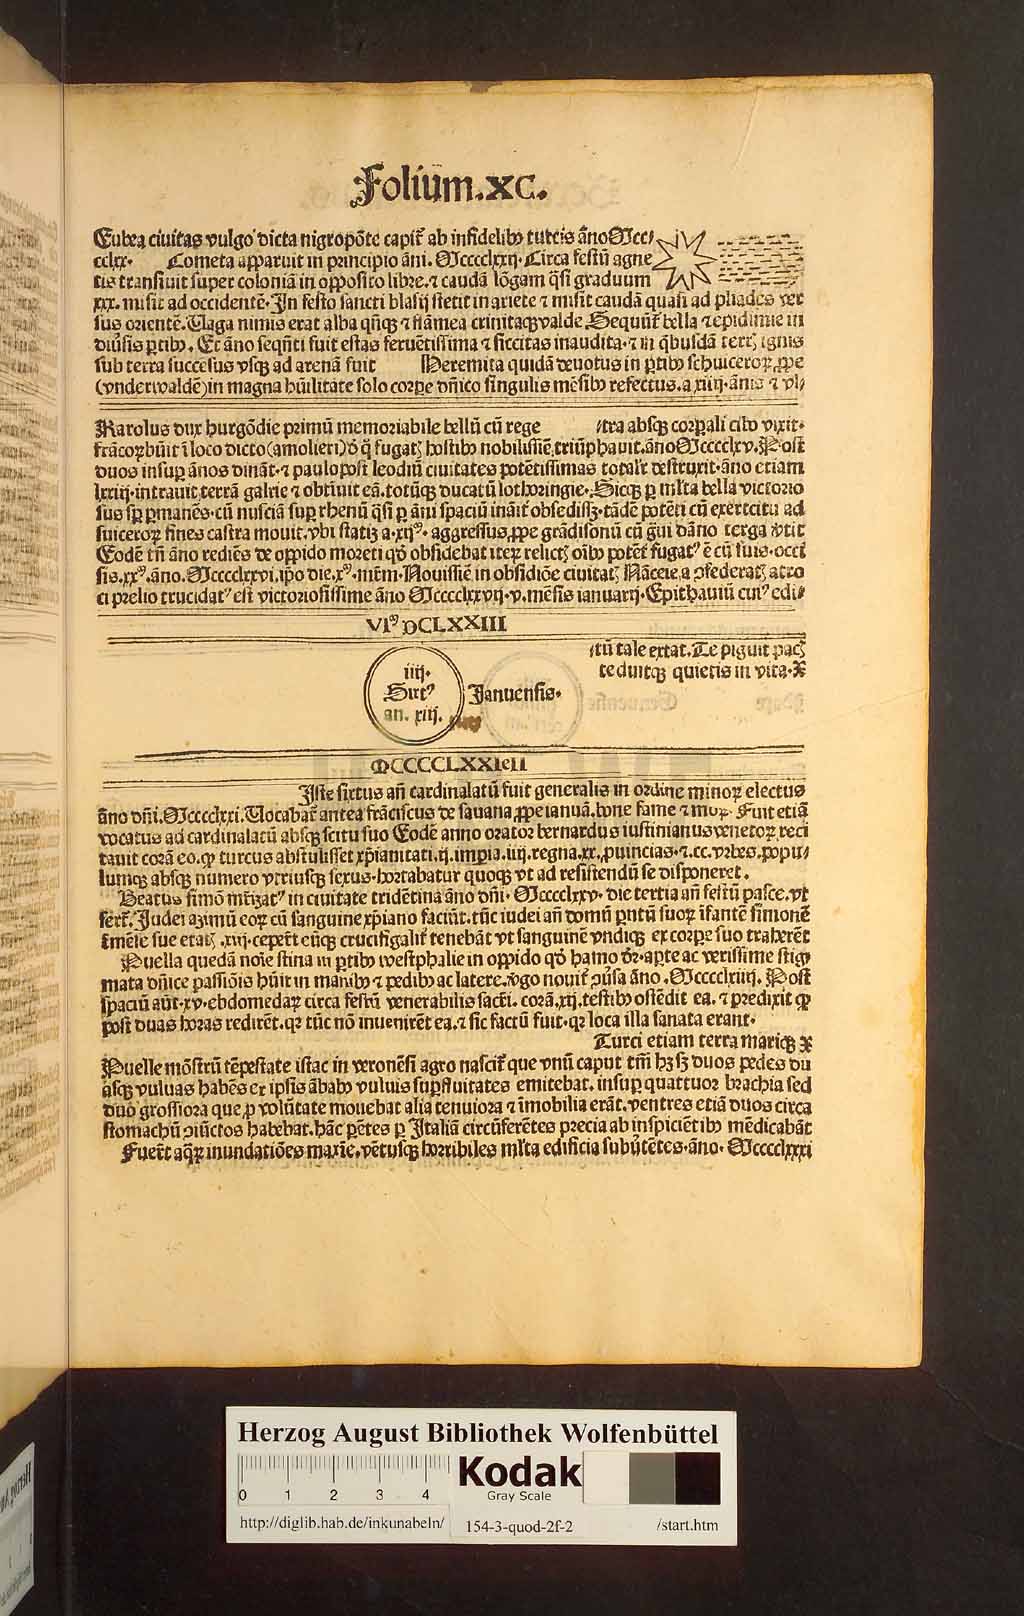 Folium.XC.
Eubea ciuitas vulgo dicta nigropōte capit̄ ab infidelibꝰ turcis āno Mccc
cclxx. Cometa apparuit in principio āni. Mcccclxxij. Circa festū agne
tis transiuit super coloniā in opposito libre. ⁊ caudā lōgam q̄si graduum
xxx. misit ad occidentē. In festo sancti blasij stetit in ariete ⁊ misit caudā quasi ad pliades ver
sus orientē. Uaga nimis erat alba qn̄qꝫ ⁊ flāmea crinitaqꝫ valde Sequūt̄ bella ⁊ epidimie in
diūsis ꝑtibꝰ. Et āno seqn̄ti fuit estas feruētissima ⁊ siccitas inaudita. ⁊ in q̄busdā terrꝭ ignis
sub terra succesus vsqꝫ ad arenā fuit Heremita quidā deuotus in ꝑtibꝰ schwiceroꝝ, ꝓpe
(vnderwaldē) in magna hūilitate solo corpe dn̄ico singulis mēsibꝰ refectus. a. xiiij. ānis ⁊ vl
Karolus dux burgōdie primū memoriabile bellū cū rege
tra absqꝫ corꝑali cibo vixit.
frācoꝝ hūit ī loco dicto (amolieri) fugatꝭ hostibꝰ nobilissiē triūphauit. āno Mcccclxv. Post
duos insuꝑ ānos dināt. ⁊ paulo post leodiū ciuitates potētissimas totalr̄ destruxit. āno etiam
lxxiij. intrauit terrā galrie ⁊ obtinuit eā. totūqꝫ ducatū lothoringie. Sicqꝫ ꝑ mlta bella victorio
sus sꝑ ꝑmanēs. cū nusciā suꝑ rhenū q̄si ꝑ āni spaciū obsedissꝫ. tādē potēti cū exercitu ad
suiceroꝝ fines castra mouit. vbi statiꝫ a. xijꝰ. aggressus, ꝓpe grādisonū cū gͣui dāno terga vtit
Eodē tn̄ āno rediēs de oppido moreti qd̄ obsidebat iteꝝ relictꝭ oībꝰ potēt fugatꝰ ē cū suis. occi
sis. xxꝰ. āno. Mcccclxxvi. ip̄o die. xꝰ. mr̄m. Nouissīe in obsidiōe ciuitatꝭ Nāceie, a ꝯfederatꝭ atro
ci prelio trucidatꝰ est victoriosissime āno Mcccclxxvij. v. mēsis ianuarij. Epithauiū cuiꝰ edi
VIꝰ DCLXXIII
tū tale extat. Te piguit pacꝭ
teduitqꝫ quietis in vita. X
iiij.
Sixtꝰ
an. xiij.
Januensis.
MCCCCLXXIeII
Iste sixtus an̄ cardinalatū fuit generalis in ordine minoꝝ electus
āno dn̄i. Mcccclxxi. Uocabat̄ antea frāciscus de sauana ꝓpe ianuā. bone fame ⁊ moꝝ. Fuit etiā
vocatus ad cardinalatū absqꝫ scitu suo Eodē anno orator bernardus iustinianus venetoꝝ reci
tauit corā eo. qꝫ turcus abstulisset xp̄ianitati. ij. imꝑia. iiij. regna. xx. ꝓuincias. ⁊. cc. vrbes. popu
lumqꝫ absqꝫ numero vtriusqꝫ sexus. hortabatur quoqꝫ vt ad resistendū se disponeret.
Beatus simō mr̄izatꝰ in ciuitate tridētina āno dn̄i. Mcccclxxv. die tertia an̄ festū pasce. vt
fert̄. Judei azimū eoꝝ cū sanguine xp̄iano faciūt. tūc iudei an̄ domū ꝑntū suoꝝ īfantē simonē
sue etatꝭ. xxij. ceꝑēt eūqꝫ crucifigalit̄ tenebāt vt sanguinē vndiqꝫ ex corpe suo traherēt
Puella quedā noīe stina in ꝑtibꝰ westphalie in oppido qd̄ hamo dr̄. apte ac verissime stig
mata dn̄ice passiōis hūit in manibꝰ ⁊ pedibꝰ ac latere. nouit̄ ꝯūsa āno. Mcccclxiiij. Post
spaciū aūt. xv. ebdomedaꝝ circa festū venerabilis sacr̄i. corā. xij. testibꝰ ostēdit ea. ⁊ predixit qꝫ
post duas horas redirēt. qꝛ tūc nō inuenirēt ea. ⁊ sic factū fuit. qꝛ loca illa sanata erant.
Turci etiam terra mariqꝫ X
Puelle mōstrū tēpestate istac in veronēsi agro nascit̄ que vnū caput tm̄ hꝫ sꝫ duos pedes du
asqꝫ vuluas habēs ex ipsis ābabꝰ vuluis suꝑfluitates emitebat. insuꝑ quattuor brachia sed
duo grossiora que, ꝓ volūtate mouebat alia tenuiora ⁊ īmobilia erāt. ventres etiā duos circa
stomachū ꝯiūctos habebat. hāc ꝑētes ꝑ Italiā circūferētes precia ab inspiciētibꝰ mēdicabāt
Fuerūt aqꝝ inundatiōes maxīe. vētusqꝫ horribiles mlta edificia subūtētes. āno. Mcccclxxxi
Herzog August Bibliothek Wolfenbüttel
0 1 2 3 4
Kodak
Gray Scale
http://diglib.hab.de/inkunabeln/ 154-3-quod-2f-2 /start.htm